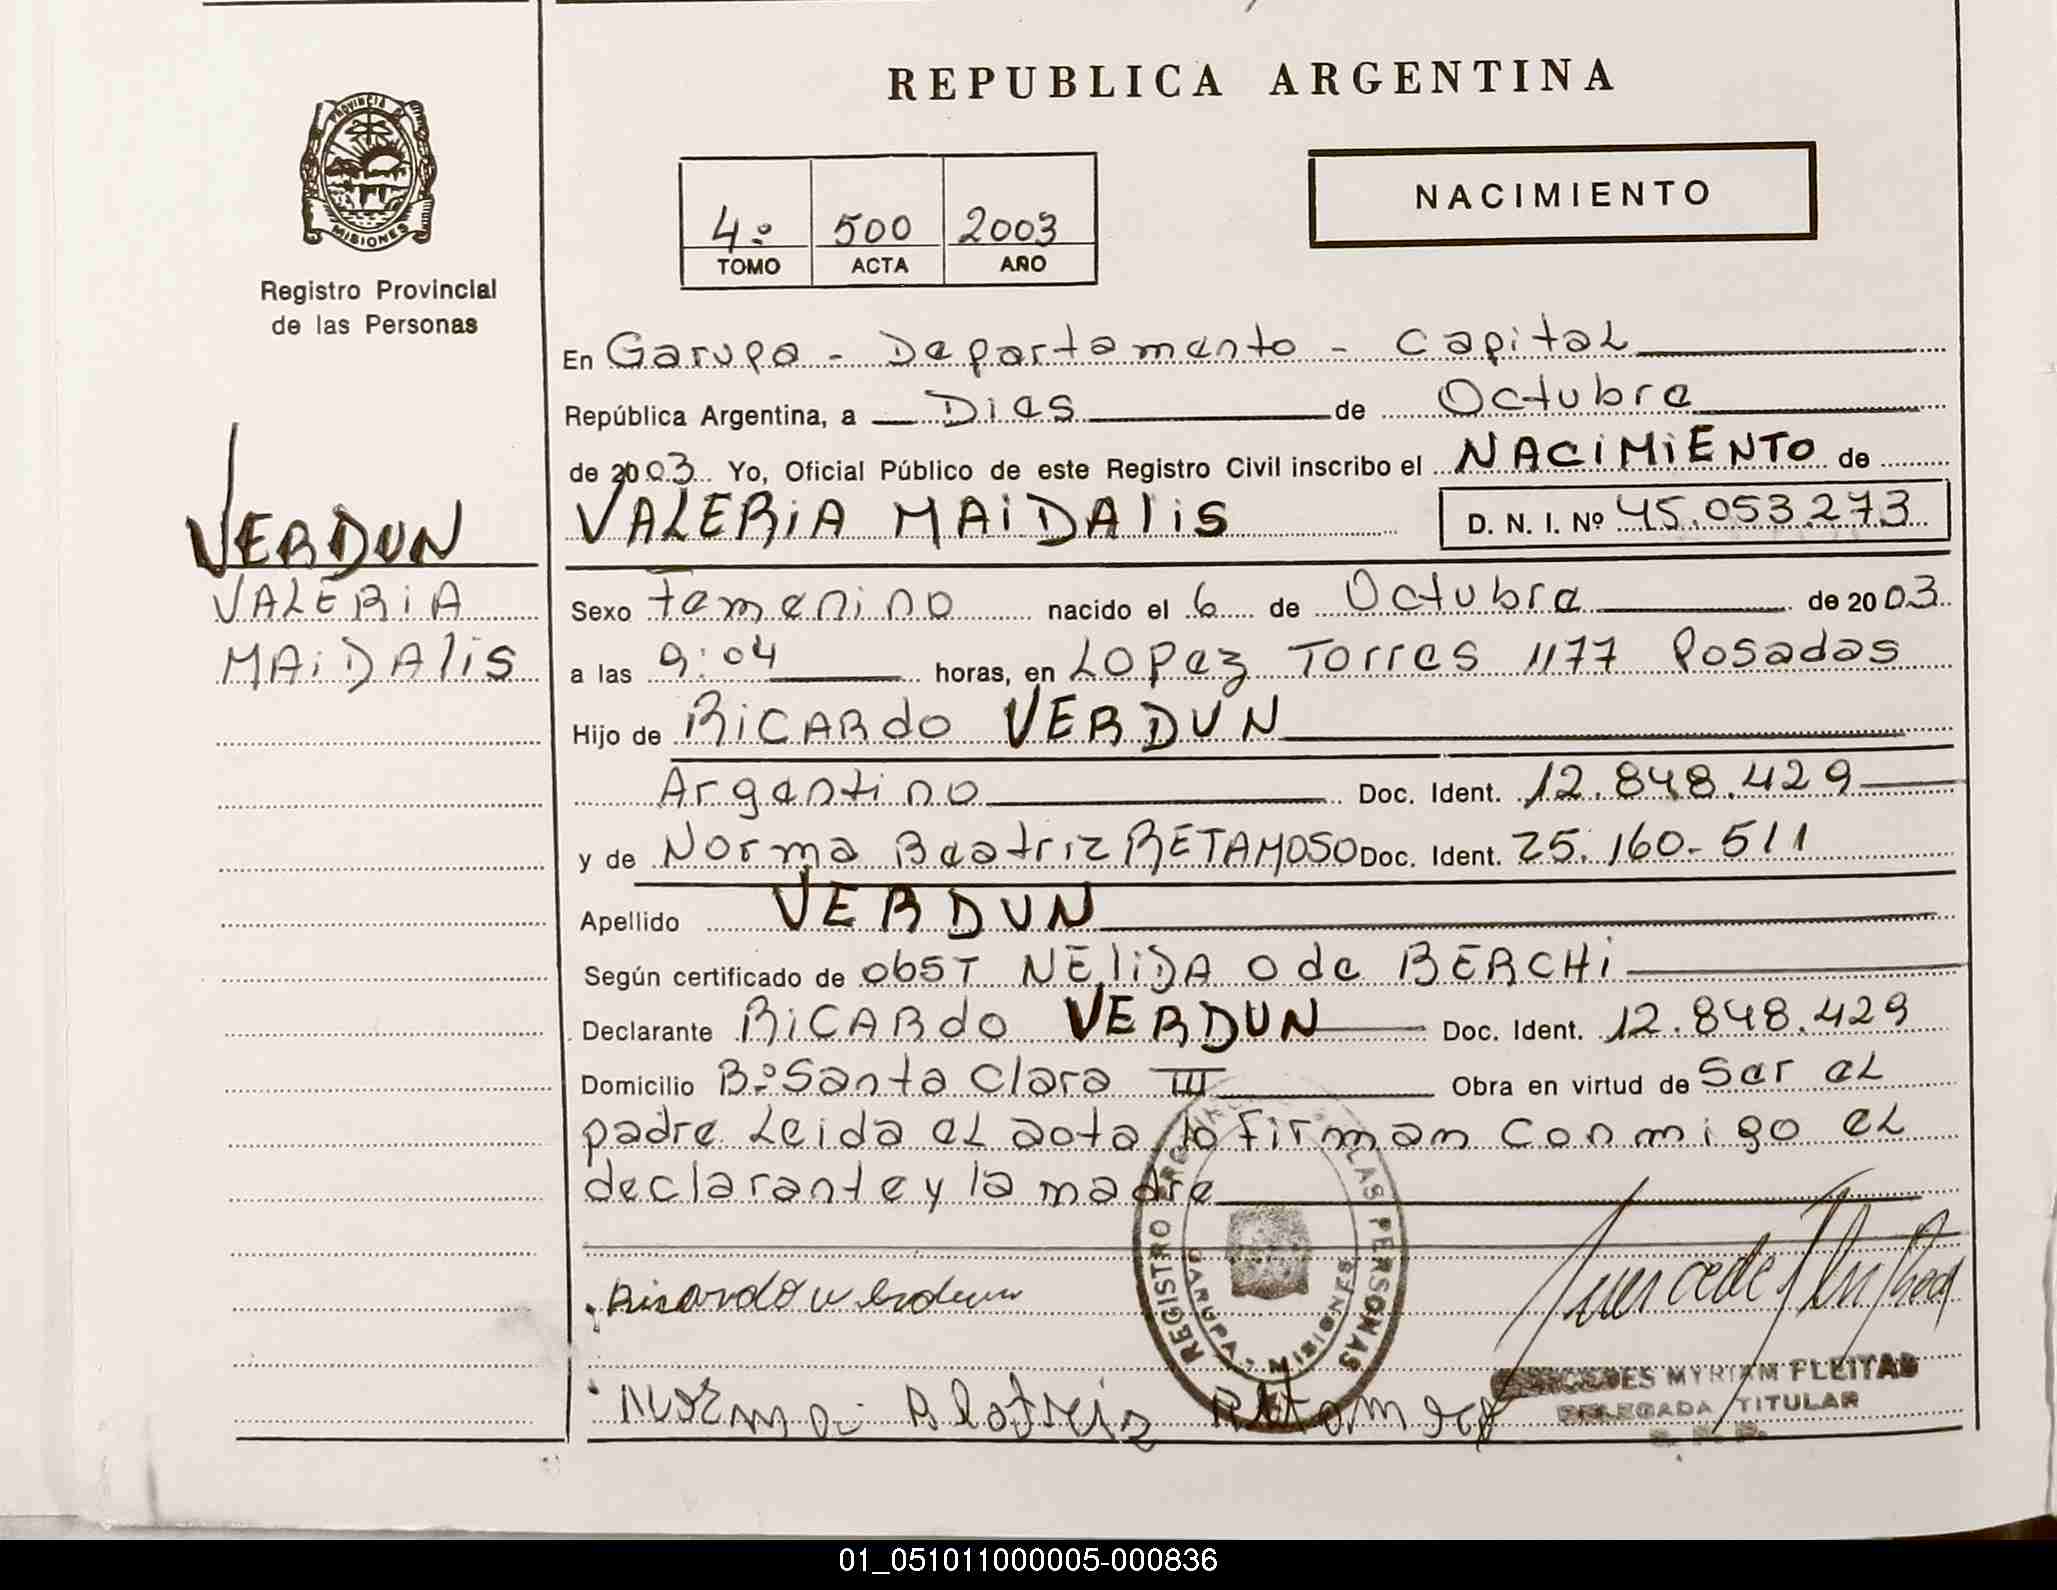 REPUBLICA ARGENTINA
NACIMIENTO
PROVINCIA DE
MISIONES
Registro Provincial
de las Personas
4º 500 2003
TOMO ACTA AÑO
En Garupa - Departamento - Capital
República Argentina, a Dies de Octubre
de 2003 Yo, Oficial Público de este Registro Civil inscribo el NACIMIENTO de
VALERIA MAIDALIS D. N. I. Nº 45.053.273
VERDUN
VALERIA
MAIDALIS
Sexo Femenino nacido el 6 de Octubre de 2003
a las 9:04 horas, en Lopez Torres 1177 Posadas
Hijo de RICARdo VERDUN
Argentino Doc. Ident. 12.848.429
y de Norma Beatriz RETAMOSO Doc. Ident. 25.160.511
Apellido VERDUN
Según certificado de obst NELIDA O de BERCHI
Declarante RICARdo VERDUN Doc. Ident. 12.848.429
Domicilio Bº Santa Clara III Obra en virtud de Ser el
padre Leida el acta lo Firman Conmigo el
declarante y la madre
REGISTRO PROVINCIAL DE LAS PERSONAS
GARUPA - MISIONES
Ricardo verdun
Norma Beatriz Retamoso
MERCEDES MYRIAM FLEITAS
DELEGADA TITULAR
R. P. P.
01_051011000005-000836